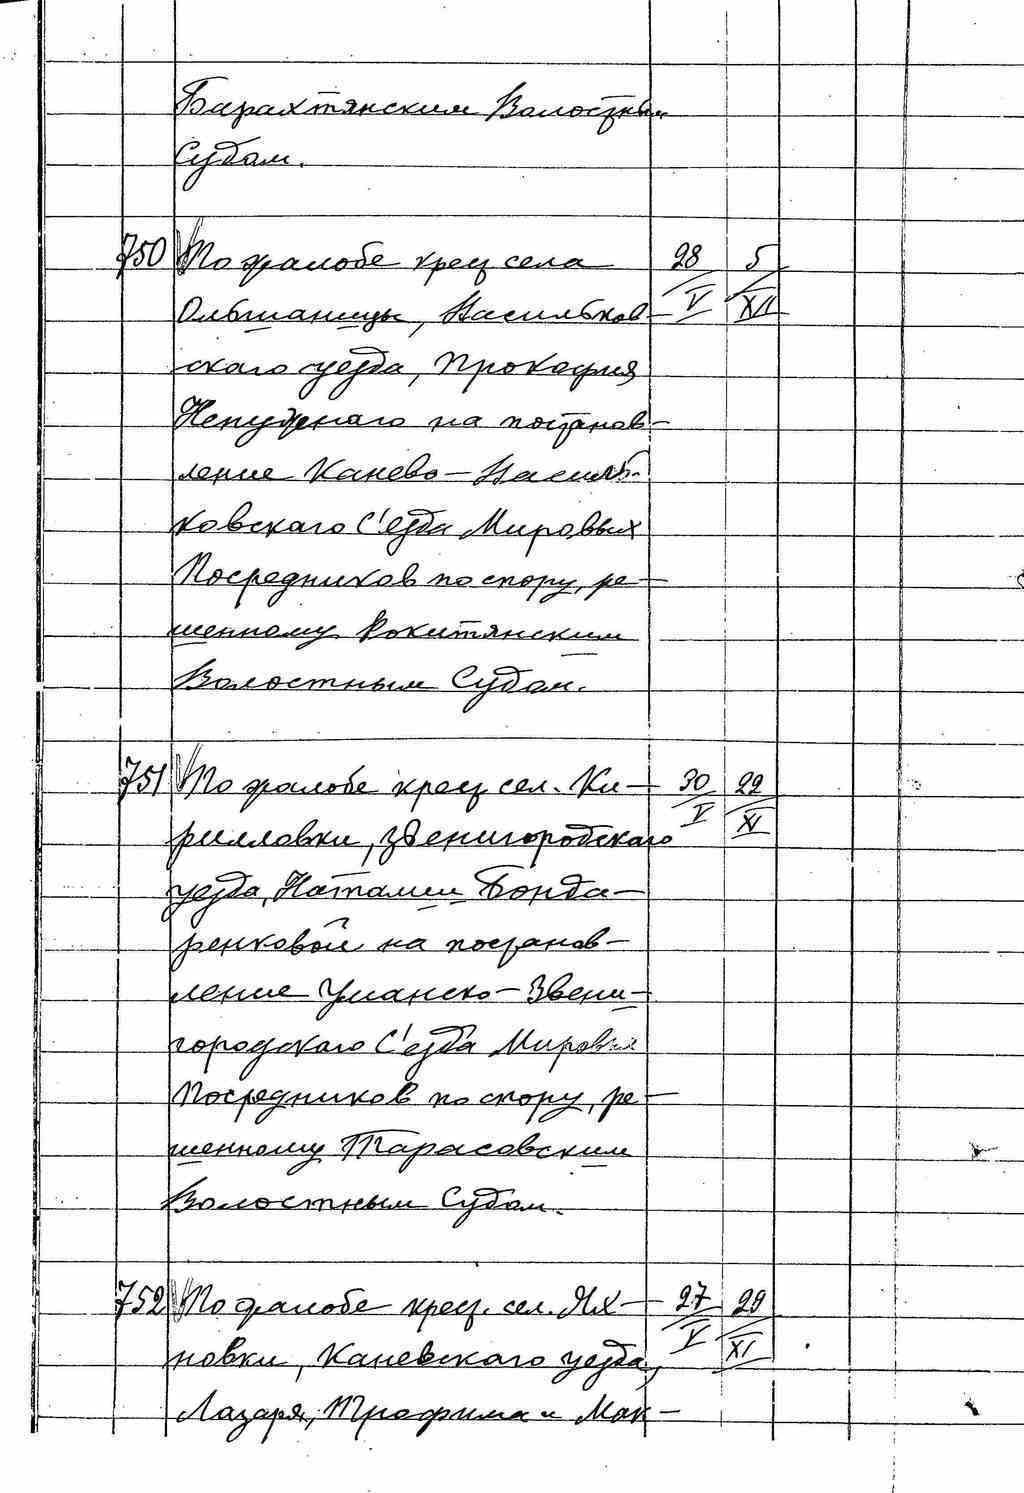 Барахтянским Волостным
Судом.
750 По жалобе крест. села 28 5
Ольшаницы, Васильков- V XII
скаго уезда, Прокофия
на постанов-
ление Канево-Василь-
ковскаго С'езда Мировых
Посредников по спору, ре-
шенному Рокитянским
Волостным Судом.
751 По жалобе крест. сел. Ки- 30 22
рилловки, Звенигородскаго V XI
уезда, Наталии Бонда-
ренковой на постанов-
ление Уманско-Звени-
городскаго С'езда Мировых
Посредников по спору, ре-
шенному Тарасовским
Волостным Судом.
752 По жалобе крест. сел. Ях- 27 29
новки, Каневскаго уезда, V XI
Лазаря, Трофима и Мак-